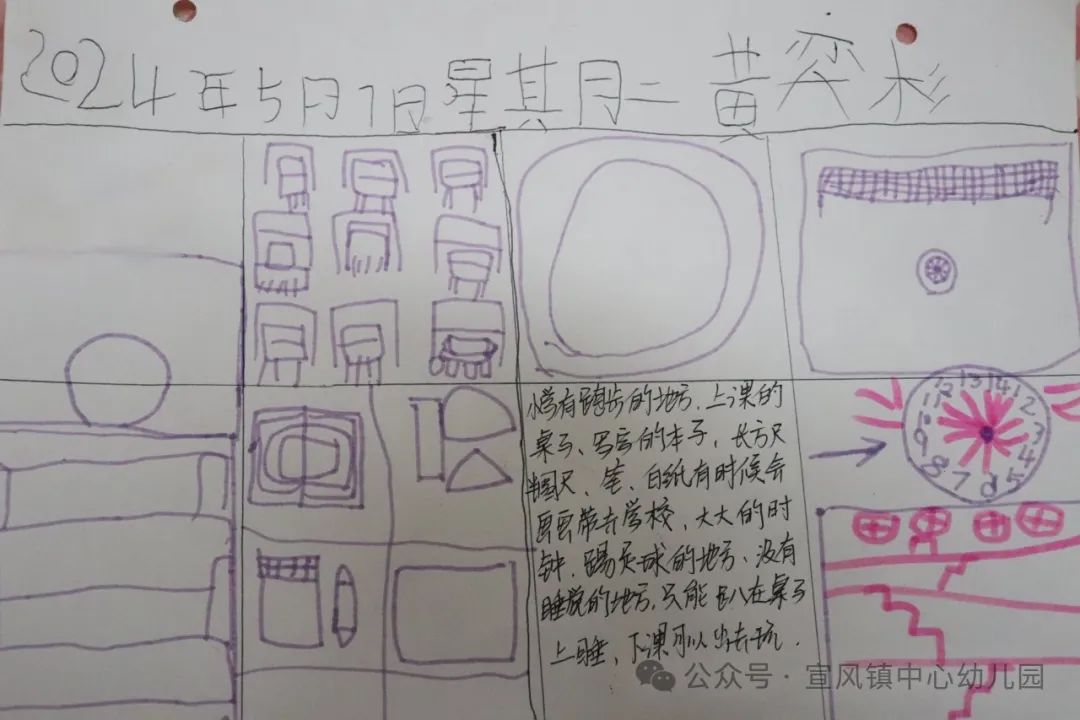 2024年5月7日星其月二 黄奕杉
小学有跑步的地方、上课的
桌子、写字的本子、长方尺
半圆尺、笔、白纸有时候会
画画带去学校、大大的时
钟、踢足球的地方、没有
睡觉的地方,只能趴在桌子
上睡、下课可以出去玩.
12 13 14 1 2 3 4 5 6 7 8 9 10
公众号·宣风镇中心幼儿园